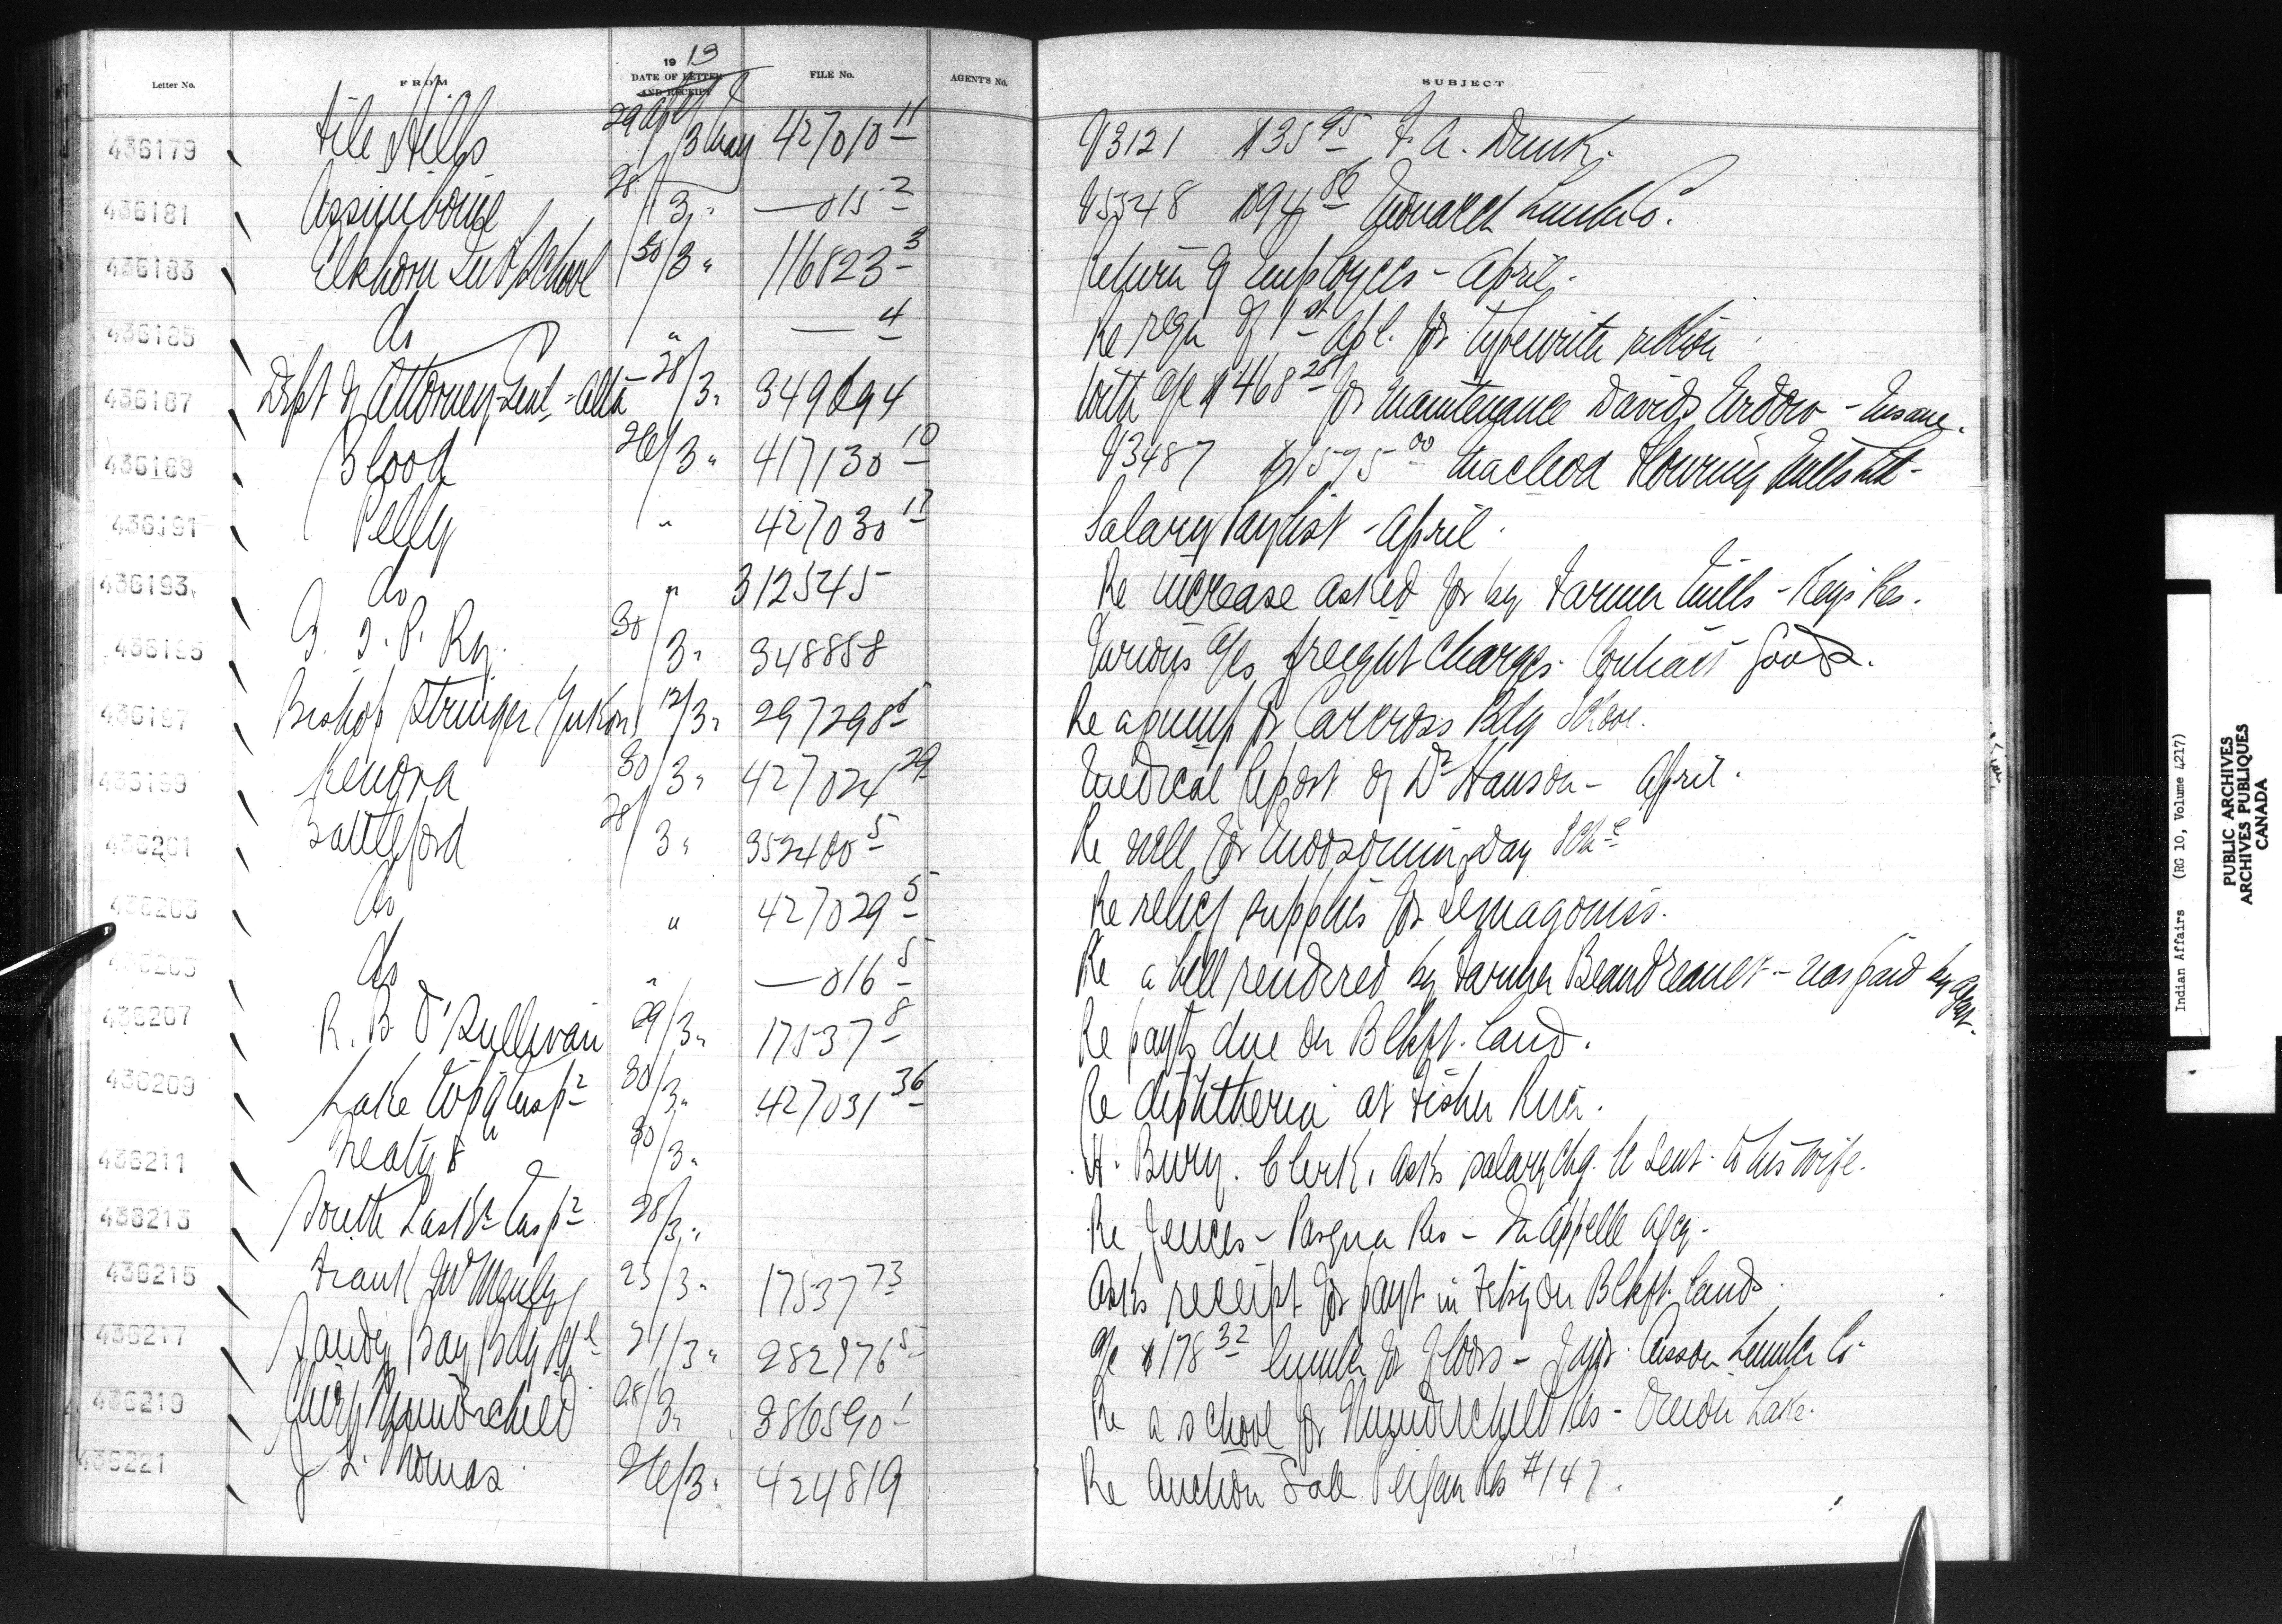 Letter No. FROM 19 13 DATE OF LETTER AND RECEIPT FILE No. AGENT'S No. SUBJECT
436179 File Hills 29 Apl / 3 May 427010 11 V3121 $35 95 F. A. Dunk.
436181 Assiniboine 28 / 3 " — 015 2 V5548 $94 86 Monarch Lumber Co.
436183 Elkhorn Ind School 30 / 3 " 116823 3 Return of Employees - April.
436185 do " — 4 Re reqn of 1st Apl. for typewriter ribbon
436187 Dept of Attorney Genl - Alta 28 / 3 " 349694 With a/c $468 28 for maintenance David - Insane.
436189 Blood 26 / 3 " 417130 10 V3487 $1575 00 Macleod Flouring Mills Ltd -
436191 Pelly " 427030 17 Salary Paylist - April.
436193 do " 312545 Re increase asked for by Farmer Mills - Keys Res.
436195 G. T. P. Ry. 30 / 3 " 348858 Various a/cs freight charges. Contract Goods.
436197 Bishop Stringer (Yukon) 12 / 3 " 297298 1 Re a pump for Carcross Bdg School.
436199 Kenora 30 / 3 " 427024 29 Medical Report of Dr Hanson - April.
436201 Battleford 28 / 3 " 352400 5 Re well for Moosomin Day Schl
436203 do " 427029 5 Re relief supplies for
436205 do " — 016 5 Re a bill rendered by Farmer - was paid by Agent.
436207 R. B. O'Sullivan 29 / 3 " 17537 8 Re payts due on Blkft. Land.
436209 Lake Wpg Insp 30 / 3 " 427031 36 Re diphtheria at Fisher River.
436211 Treaty 8 " 30 / 3 " H. Bury. Clerk, asks salary chq. be sent to his wife.
436213 South Sask Insp 28 / 3 " Re fences - Pasqua Res - Qu'Appelle Agcy.
436215 Frank 25 / 3 " 17537 73 Asks receipt for payt in Feby on Blkft. Lands.
436217 Sandy Bay Bdg Schl 21 / 3 " 282976 5 a/c $178 32 lumber for floors - favor Lumber Co -
436219 Chief Thunderchild 28 / 3 " 386590 1 Re a school for Thunderchild Res - Onion Lake.
436221 J. L. Thomas 26 / 3 " 424819 Re Auction Sale Peigan Res #147.
Indian Affairs (RG 10, Volume 4217)
PUBLIC ARCHIVES
ARCHIVES PUBLIQUES
CANADA